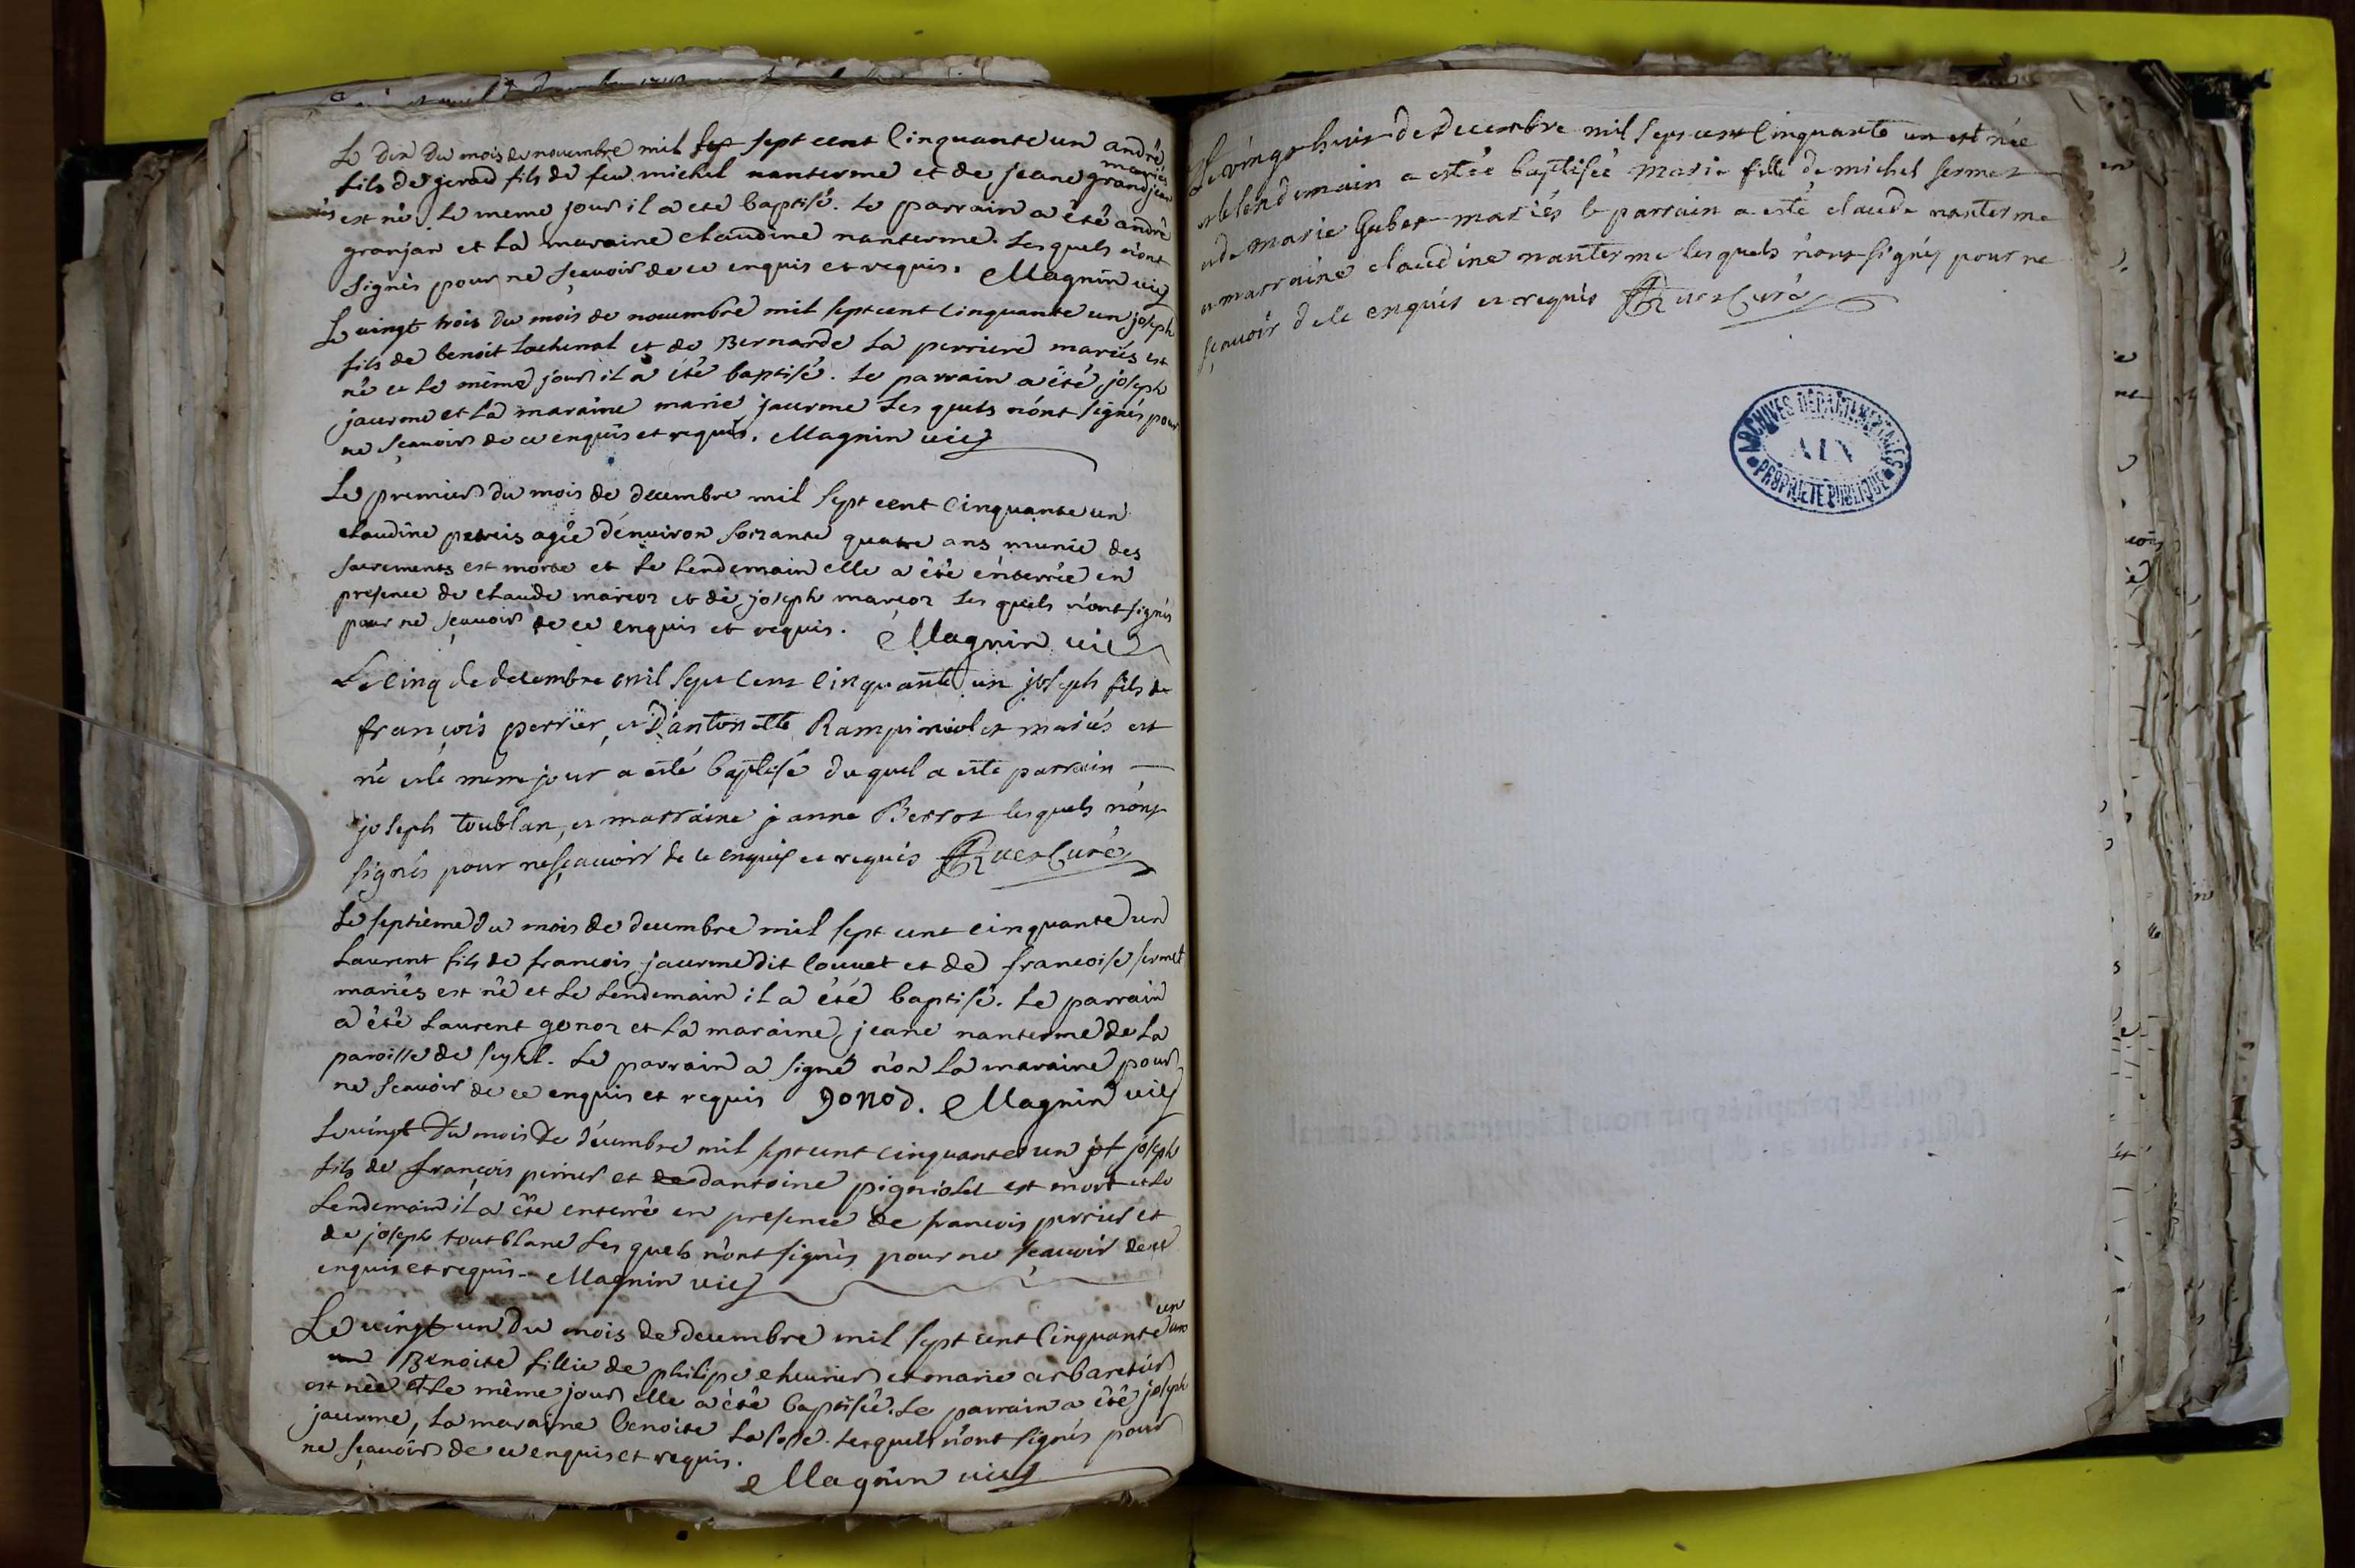 Le dix du mois de novembre mil sep sept cent cinquante un andré
fils de gerod fils de feu michel nanterme et de jeane grandjean mariés
est né. Le meme jour il a eté baptisé. Le parrain a été andré
granjan et la maraine claudine nanterme. Les quels n'ont
signés pour ne sçavoir de ce enquis et requis. Magnin vic
Le vingt trois du mois de novembre mil sept cent cinquante un joseph
fils de benoit Lachenal et de Bernarde La perriere mariés est
né et le même jour il a été baptisé. Le parrain a été joseph
jaurme et la maraine marie jaurme Les quels n'ont signés pour
ne sçavoir de ce enquis et requis. Magnin vic
Le premier du mois de decembre mil sept cent cinquante un
claudine agée d'environ soixante quatre ans munie des
sacrements est morte et le lendemain elle a été enterrée en
presence de claude marcoz et de joseph marcoz Les quels n'ont signés
pour ne sçavoir de ce enquis et requis. Magnin vic
Le cinq de decembre mil sept cent cinquante un joseph fils de
françois perrier, et D'antonette Rampiniolet mariés est
né et le meme jour a esté baptisé duquel a esté parrain
joseph toublan, et marraine janne Berroz lesquels n'ont
signés pour ne sçavoir de ce enquis et requis Ruez Curé
Le septième du mois de decembre mil sept cent cinquante un
Laurent fils de francois jaurme dit louvet et de francoise sermet
mariés est né et le lendemain il a été baptisé. Le parrain
a été Laurent gonoz et la maraine jeane nanterme de la
paroisse de seyssel. Le parrain a signé non la maraine pour
ne scavoir de ce enquis et requis gonod. Magnin vic
Le vingt du mois de décembre mil sept cent cinquante un jof joseph
fils de françois perrier et de dantoine pigniolet est mort et le
Lendemain il a été enterré en presence de francois perrier et
de joseph tout blanc Les quels n'ont signés pour ne sçavoir de ce
enquis et requis. Magnin vic
Le vingt un du mois de decembre mil sept cent cinquante un
un Benoite fillie de philipe chevrier et marie arbaretier
est née et le même jour elle a été baptisée. Le parrain a été joseph
jaurme, la maraine benoite Lesquels n'ont signés pour
ne sçavoir de ce enquis et requis.
Magnin vic
Le vingt huit de Decembre mil sept cent cinquante un est née
et le lendemain a estée baptisée Marie fille de michel sermet
et de marie Gubet mariés le parrain a esté claude nanterme
et marraine claudine nanterme lesquels n'ont signés pour ne
sçavoir de ce enquis et requis Ruez Curé
ARCHIVES DÉPARTEMENTALES
AIN
PROPRIÉTÉ PUBLIQUE